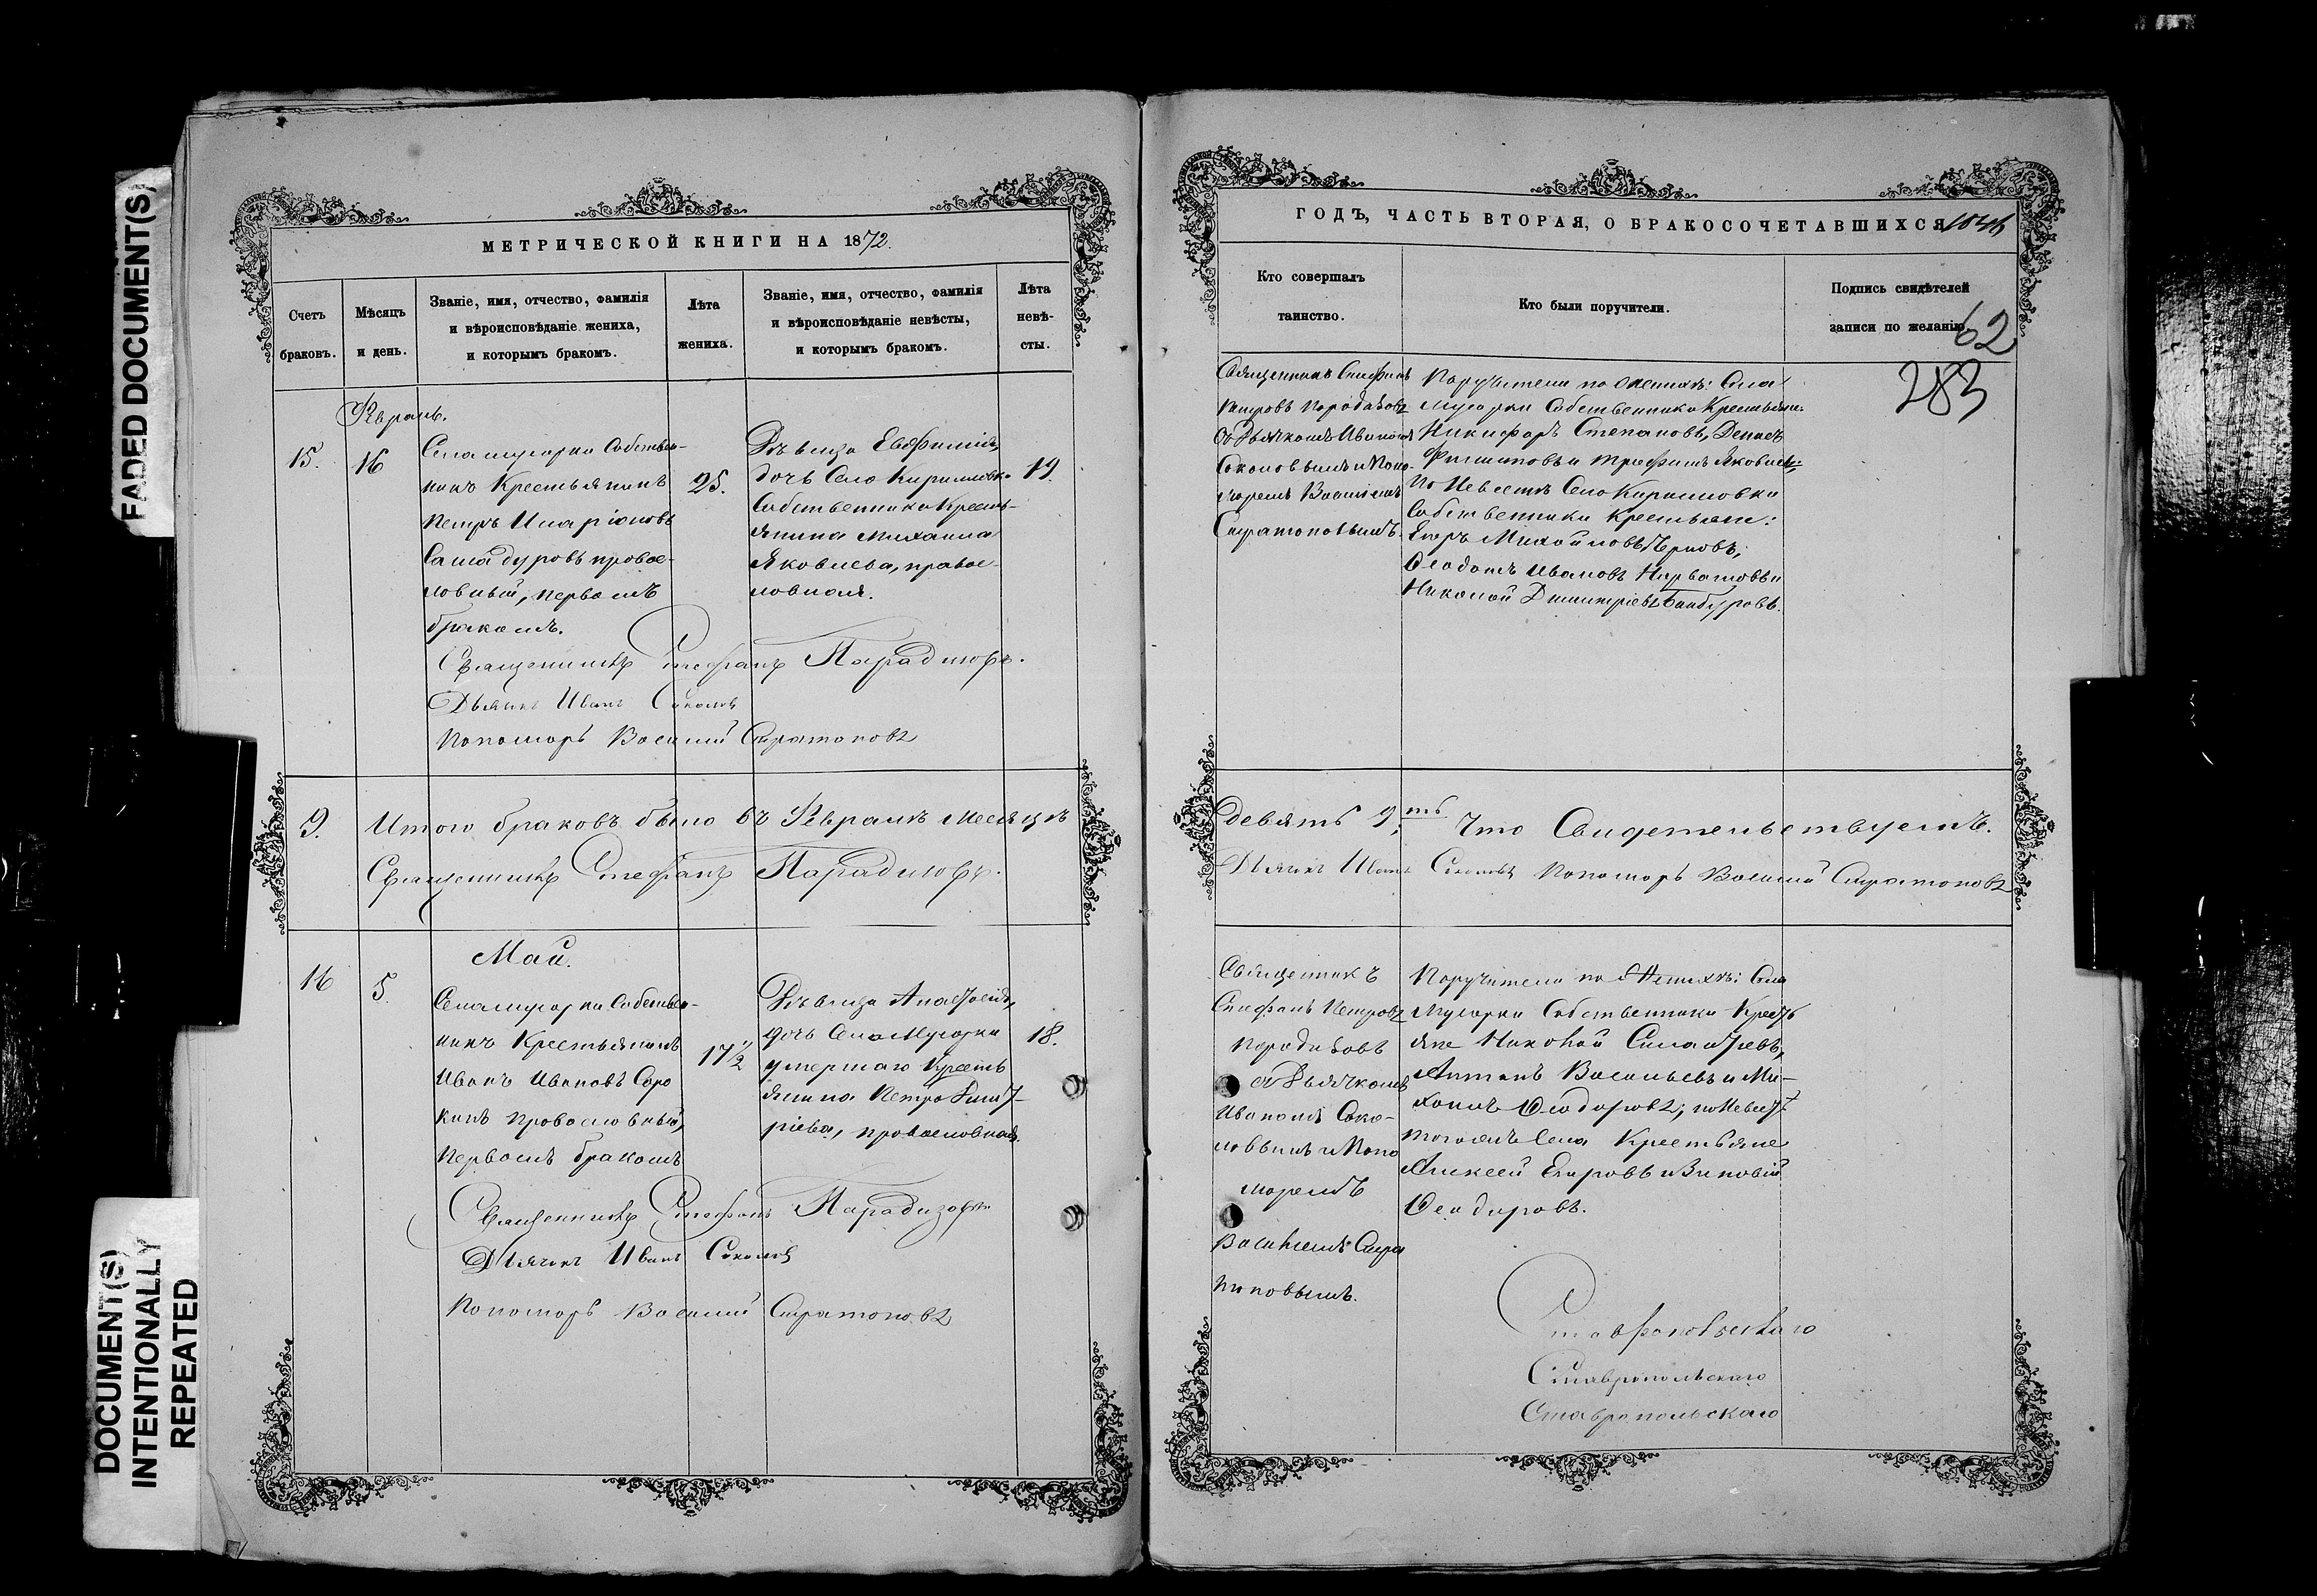 FADED DOCUMENT(S)
DOCUMENT(S)
INTENTIONALLY
REPEATED
МЕТРИЧЕСКОЙ КНИГИ НА 1872.
Счетъ
браковъ.
Мѣсяцъ
и день.
Званіе, имя, отчество, фамилія
и вѣроисповѣданіе жениха,
и которымъ бракомъ.
Лѣта
жениха.
Званіе, имя, отчество, фамилія
и вѣроисповѣданіе невѣсты,
и которымъ бракомъ.
Лѣта
невѣ-
сты.
Февраль.
15.
16
Села Мусорки Собствен-
никъ Крестьянинъ
Петръ Иларіоновъ
правос-
лавный, первымъ
бракомъ.
25.
Дѣвица Евфимія,
дочь Села Кириловки
Собственника Кресть-
янина Михаила
Яковлева, правос-
лавная.
19.
Священникъ Стефанъ Парадизовъ.
Дьячекъ Иванъ Соколовъ
Пономарь Василий Стратоновъ
9.
Итого браковъ было въ Февралѣ месяцѣ
Священникъ Стефанъ Парадизовъ.
Май.
16
5.
Села Мусорки Собствен-
никъ Крестьянинъ
Иванъ Ивановъ Соро
кинъ православный,
первымъ бракомъ
17 1/2
Дѣвица Анастасія,
дочь Села Мусорки
умершаго Кресть
янина Петра Дмит-
ріева, православная.
18.
Священникъ Стефанъ Парадизовъ
Дьячекъ Иванъ Соколовъ
Пономарь Василий Стратоновъ
ГОДЪ, ЧАСТЬ ВТОРАЯ, О БРАКОСОЧЕТАВШИХСЯ
Кто совершалъ
таинство.
Кто были поручители.
Подпись свидѣтелей
записи по желанію.
62
283
Священникъ Стефанъ
Петровъ Парадизовъ
съ Дьячкомъ Иваномъ
Соколовымъ и Поно-
маремъ Василіемъ
Стратоновымъ.
Поручители по Женихѣ: Села
Мусорки Собственники Крестьяне:
Никифоръ Степановъ, Денисъ
Филиповъ и Трофимъ Яковлевъ;
По Невестѣ Села Кириловки
Собственники Крестьяне:
Егоръ Михайловъ
Феодотъ Ивановъ
Николай Дмитріевъ
Девять 9. ть Что Свидетельствуемъ.
Дьячекъ Иванъ Соколовъ Пономарь Василий Стратоновъ
Священникъ
Стефанъ Петровъ
Парадизовъ
съ Дьячкомъ
Иваномъ Соко-
ловымъ и Поно
маремъ
Василіемъ Стра
тоновымъ.
Поручители по Женихѣ: Села
Мусорки Собственники Кресть
яне Николай
Антонъ Васильевъ и Ми-
хаилъ Феодоровъ; по Невест
тогожъ Села Крестьяне
Алексей Егоровъ и Зиновій
Феодоровъ.
Ставропольскаго
Ставропольскаго